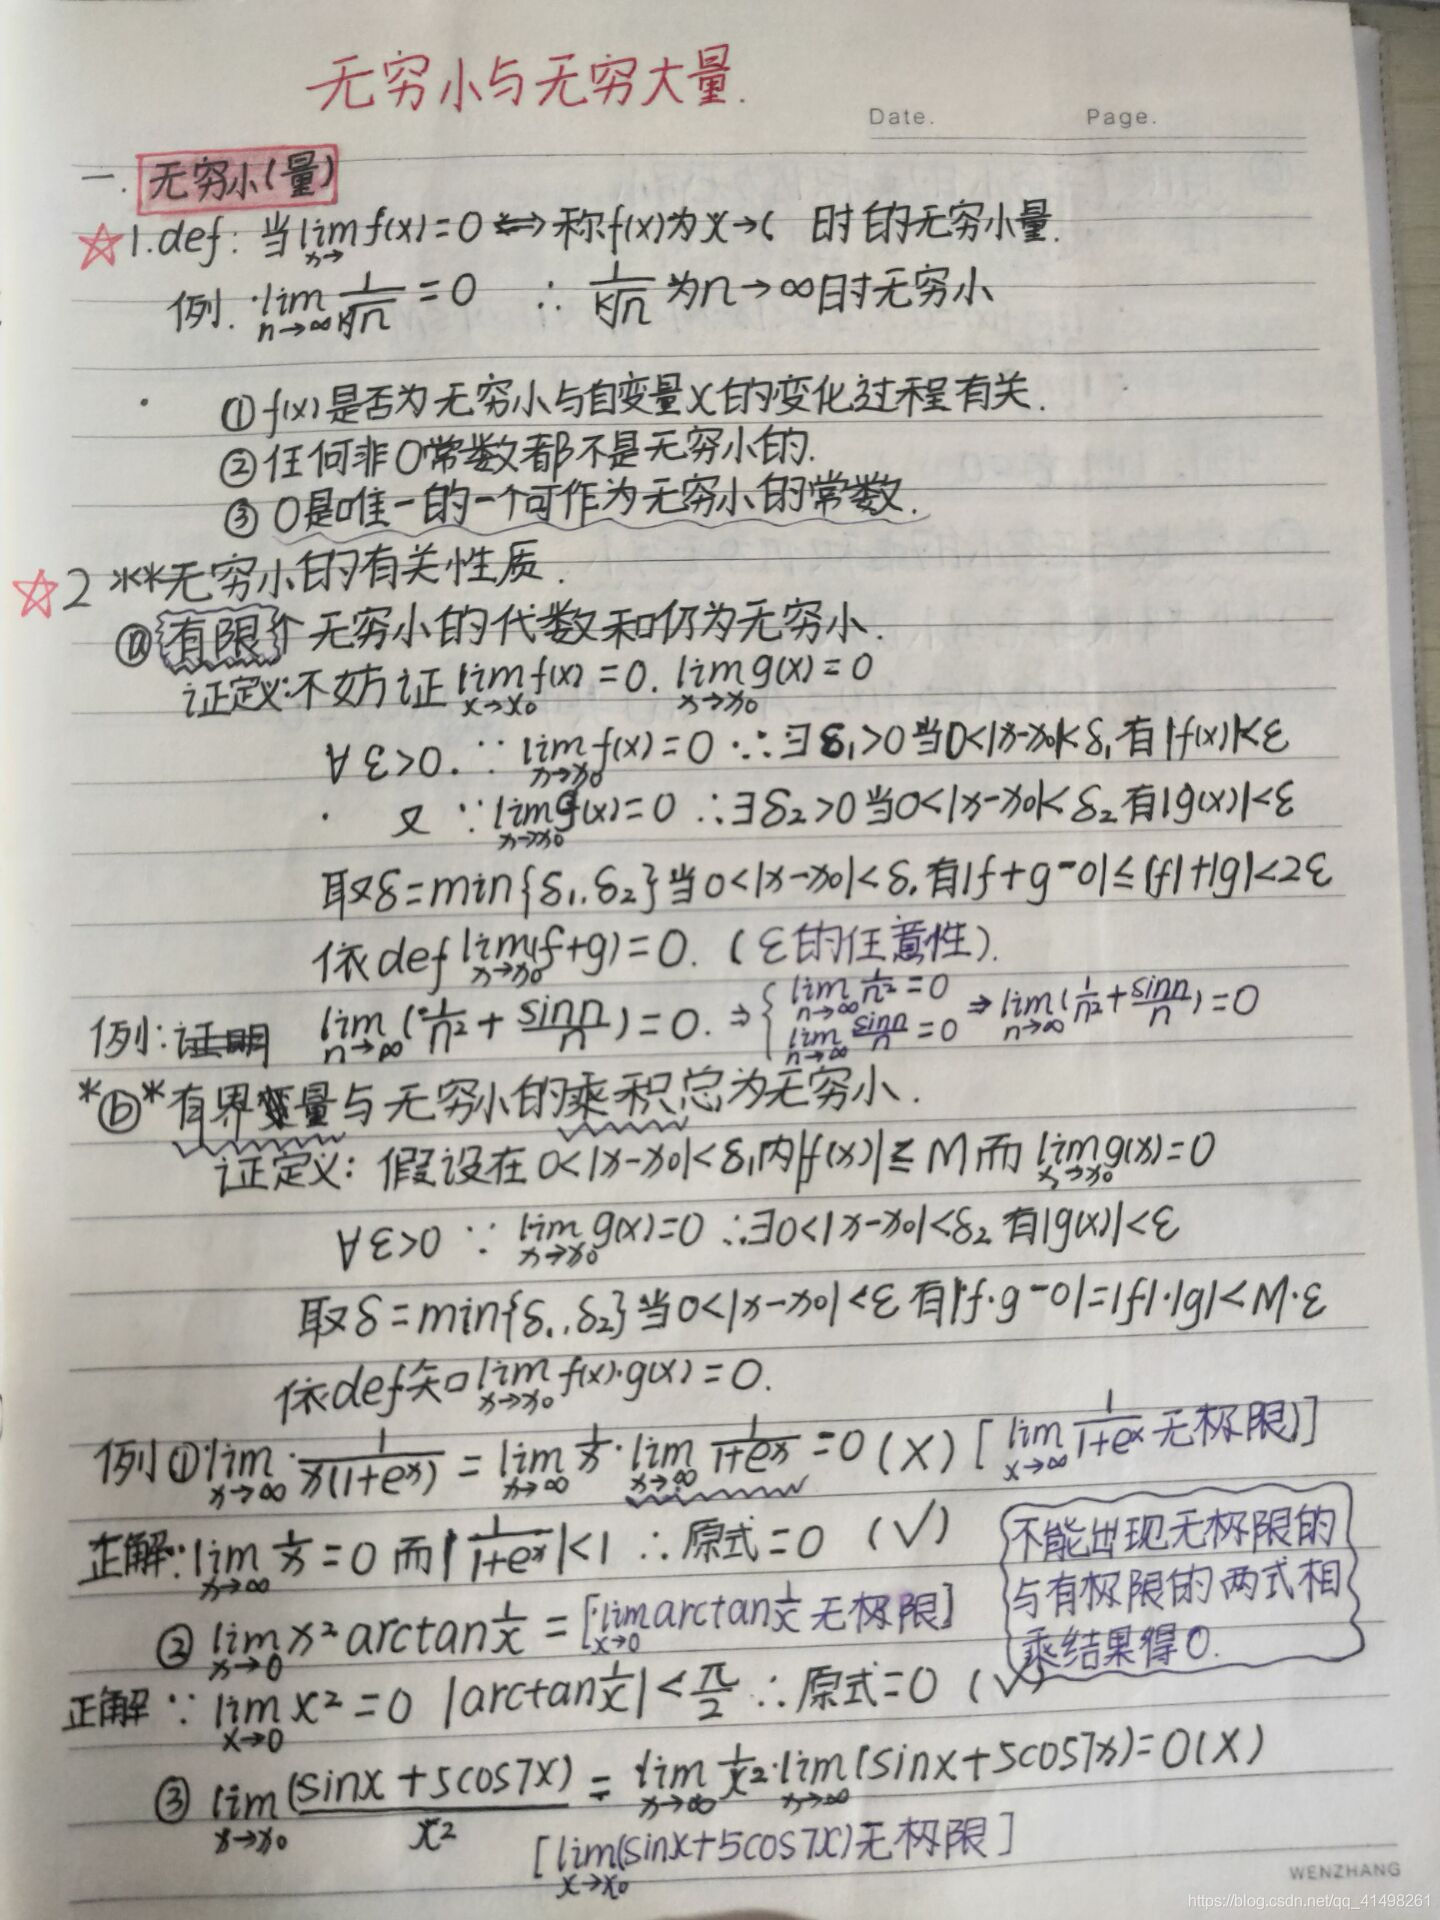 无穷小与无穷大量.
Date. Page.
一. 无穷小(量)
☆1.def: 当lim f(x)=0 ⟺ 称f(x)为x→( 时的无穷小量.
x→
例. lim 1/k√n = 0 ∴ 1/k√n 为n→∞时无穷小
n→∞
① f(x)是否为无穷小与自变量x的变化过程有关.
② 任何非0常数都不是无穷小的.
③ 0是唯一的一个可作为无穷小的常数.
☆2 **无穷小的有关性质.
ⓐ 有限个无穷小的代数和仍为无穷小.
证定义:不妨证 lim f(x) = 0. lim g(x) = 0
x→x₀ x→x₀
∀ε>0. ∵ lim f(x) = 0 ∴∃δ₁>0当0<|x-x₀|<δ₁有|f(x)|<ε
x→x₀
又 ∵ lim g(x)=0 ∴∃δ₂>0当0<|x-x₀|<δ₂有|g(x)|<ε
x→x₀
取δ=min{δ₁.δ₂}当0<|x-x₀|<δ.有|f+g-0|≤|f|+|g|<2ε
依def lim(f+g)=0. (ε的任意性).
x→x₀
例:证明 lim (1/n² + sinn/n) = 0. ⇒ { lim 1/n² = 0 lim sinn/n = 0 ⇒ lim (1/n² + sinn/n) = 0
n→∞ n→∞ n→∞ n→∞
*ⓑ*有界变量与无穷小的乘积总为无穷小.
证定义: 假设在0<|x-x₀|<δ₁内|f(x)|≤M而 lim g(x)=0
x→x₀
∀ε>0 ∵ lim g(x)=0 ∴∃0<|x-x₀|<δ₂有|g(x)|<ε
x→x₀
取δ=min{δ₁.δ₂}当0<|x-x₀|<ε有|f·g-0|=|f|·|g|<M·ε
依def知 lim f(x)·g(x)=0.
x→x₀
例① lim 1/x(1+eˣ) = lim 1/x · lim 1/1+eˣ = 0 (X) [lim 1/1+eˣ 无极限)]
x→∞ x→∞ x→∞ x→∞
正解:∵lim 1/x = 0 而|1/1+eˣ|<1 ∴原式=0 (√)
x→∞
不能出现无极限的
与有极限的两式相
乘结果得0.
② lim x² arctan 1/x = [∵lim arctan 1/x 无极限]
x→0 x→0
正解 ∵ lim x² = 0 |arctan 1/x| < π/2 ∴原式=0 (√)
x→0
③ lim (sinx+5cos7x)/x² = lim 1/x²·lim (sinx+5cos7x)=0(X)
x→x₀ x→∞ x→∞
[lim(sinx+5cos7x)无极限]
x→x₀
WENZHANG
https://blog.csdn.net/qq_41498261